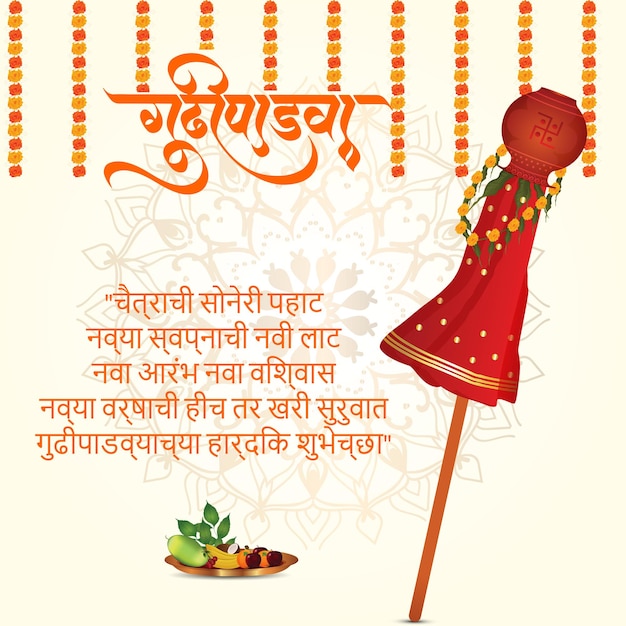 गुढीपाडवा
"चैत्राची सोनेरी पहाट
नव्या स्वप्नाची नवी लाट
नवा आरंभ नवा विश्वास
नव्या वर्षाची हीच तर खरी सुरुवात
गुढीपाडव्याच्या हार्दिक शुभेच्छा"